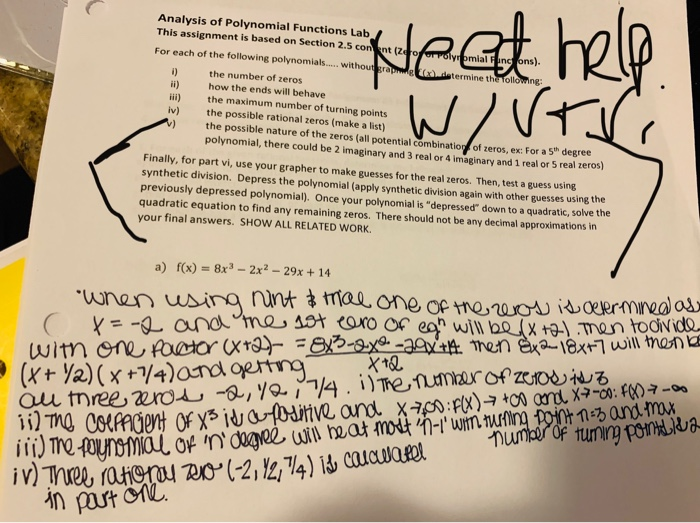 Analysis of Polynomial Functions Lab
This assignment is based on Section 2.5 content (Zeros of Polynomial Functions).
Need help
w/ v + vi
For each of the following polynomials..... without graphing f(x), determine the following:
i) the number of zeros
ii) how the ends will behave
iii) the maximum number of turning points
iv) the possible rational zeros (make a list)
v) the possible nature of the zeros (all potential combination of zeros, ex: For a 5th degree
polynomial, there could be 2 imaginary and 3 real or 4 imaginary and 1 real or 5 real zeros)
Finally, for part vi, use your grapher to make guesses for the real zeros. Then, test a guess using
synthetic division. Depress the polynomial (apply synthetic division again with other guesses using the
previously depressed polynomial). Once your polynomial is "depressed" down to a quadratic, solve the
quadratic equation to find any remaining zeros. There should not be any decimal approximations in
your final answers. SHOW ALL RELATED WORK.
a) f(x) = 8x³ – 2x² – 29x + 14
when using hint & trial one of the zeros is determined as
x = -2 and the 1st zero of eqn will be (x+2). Then to divide
with one factor (x+2) = 8x³-2x²-29x+14 then 8x² 18x+7 will then be
x+2
(x+1/2)(x+7/4) and getting
all three zeros -2, 1/2, 7/4. i) The number of zeros is 3
ii) The coefficient of x³ is a positive and x→∞: f(x)→+∞ and x→-∞: f(x)→-∞
iii) The polynomial of 'n' degree will be at most 'n-1' with turning point n=3 and max
number of turning points is 2
iv) Three rational zero (-2, 1/2, 7/4) is calculated
in part one.